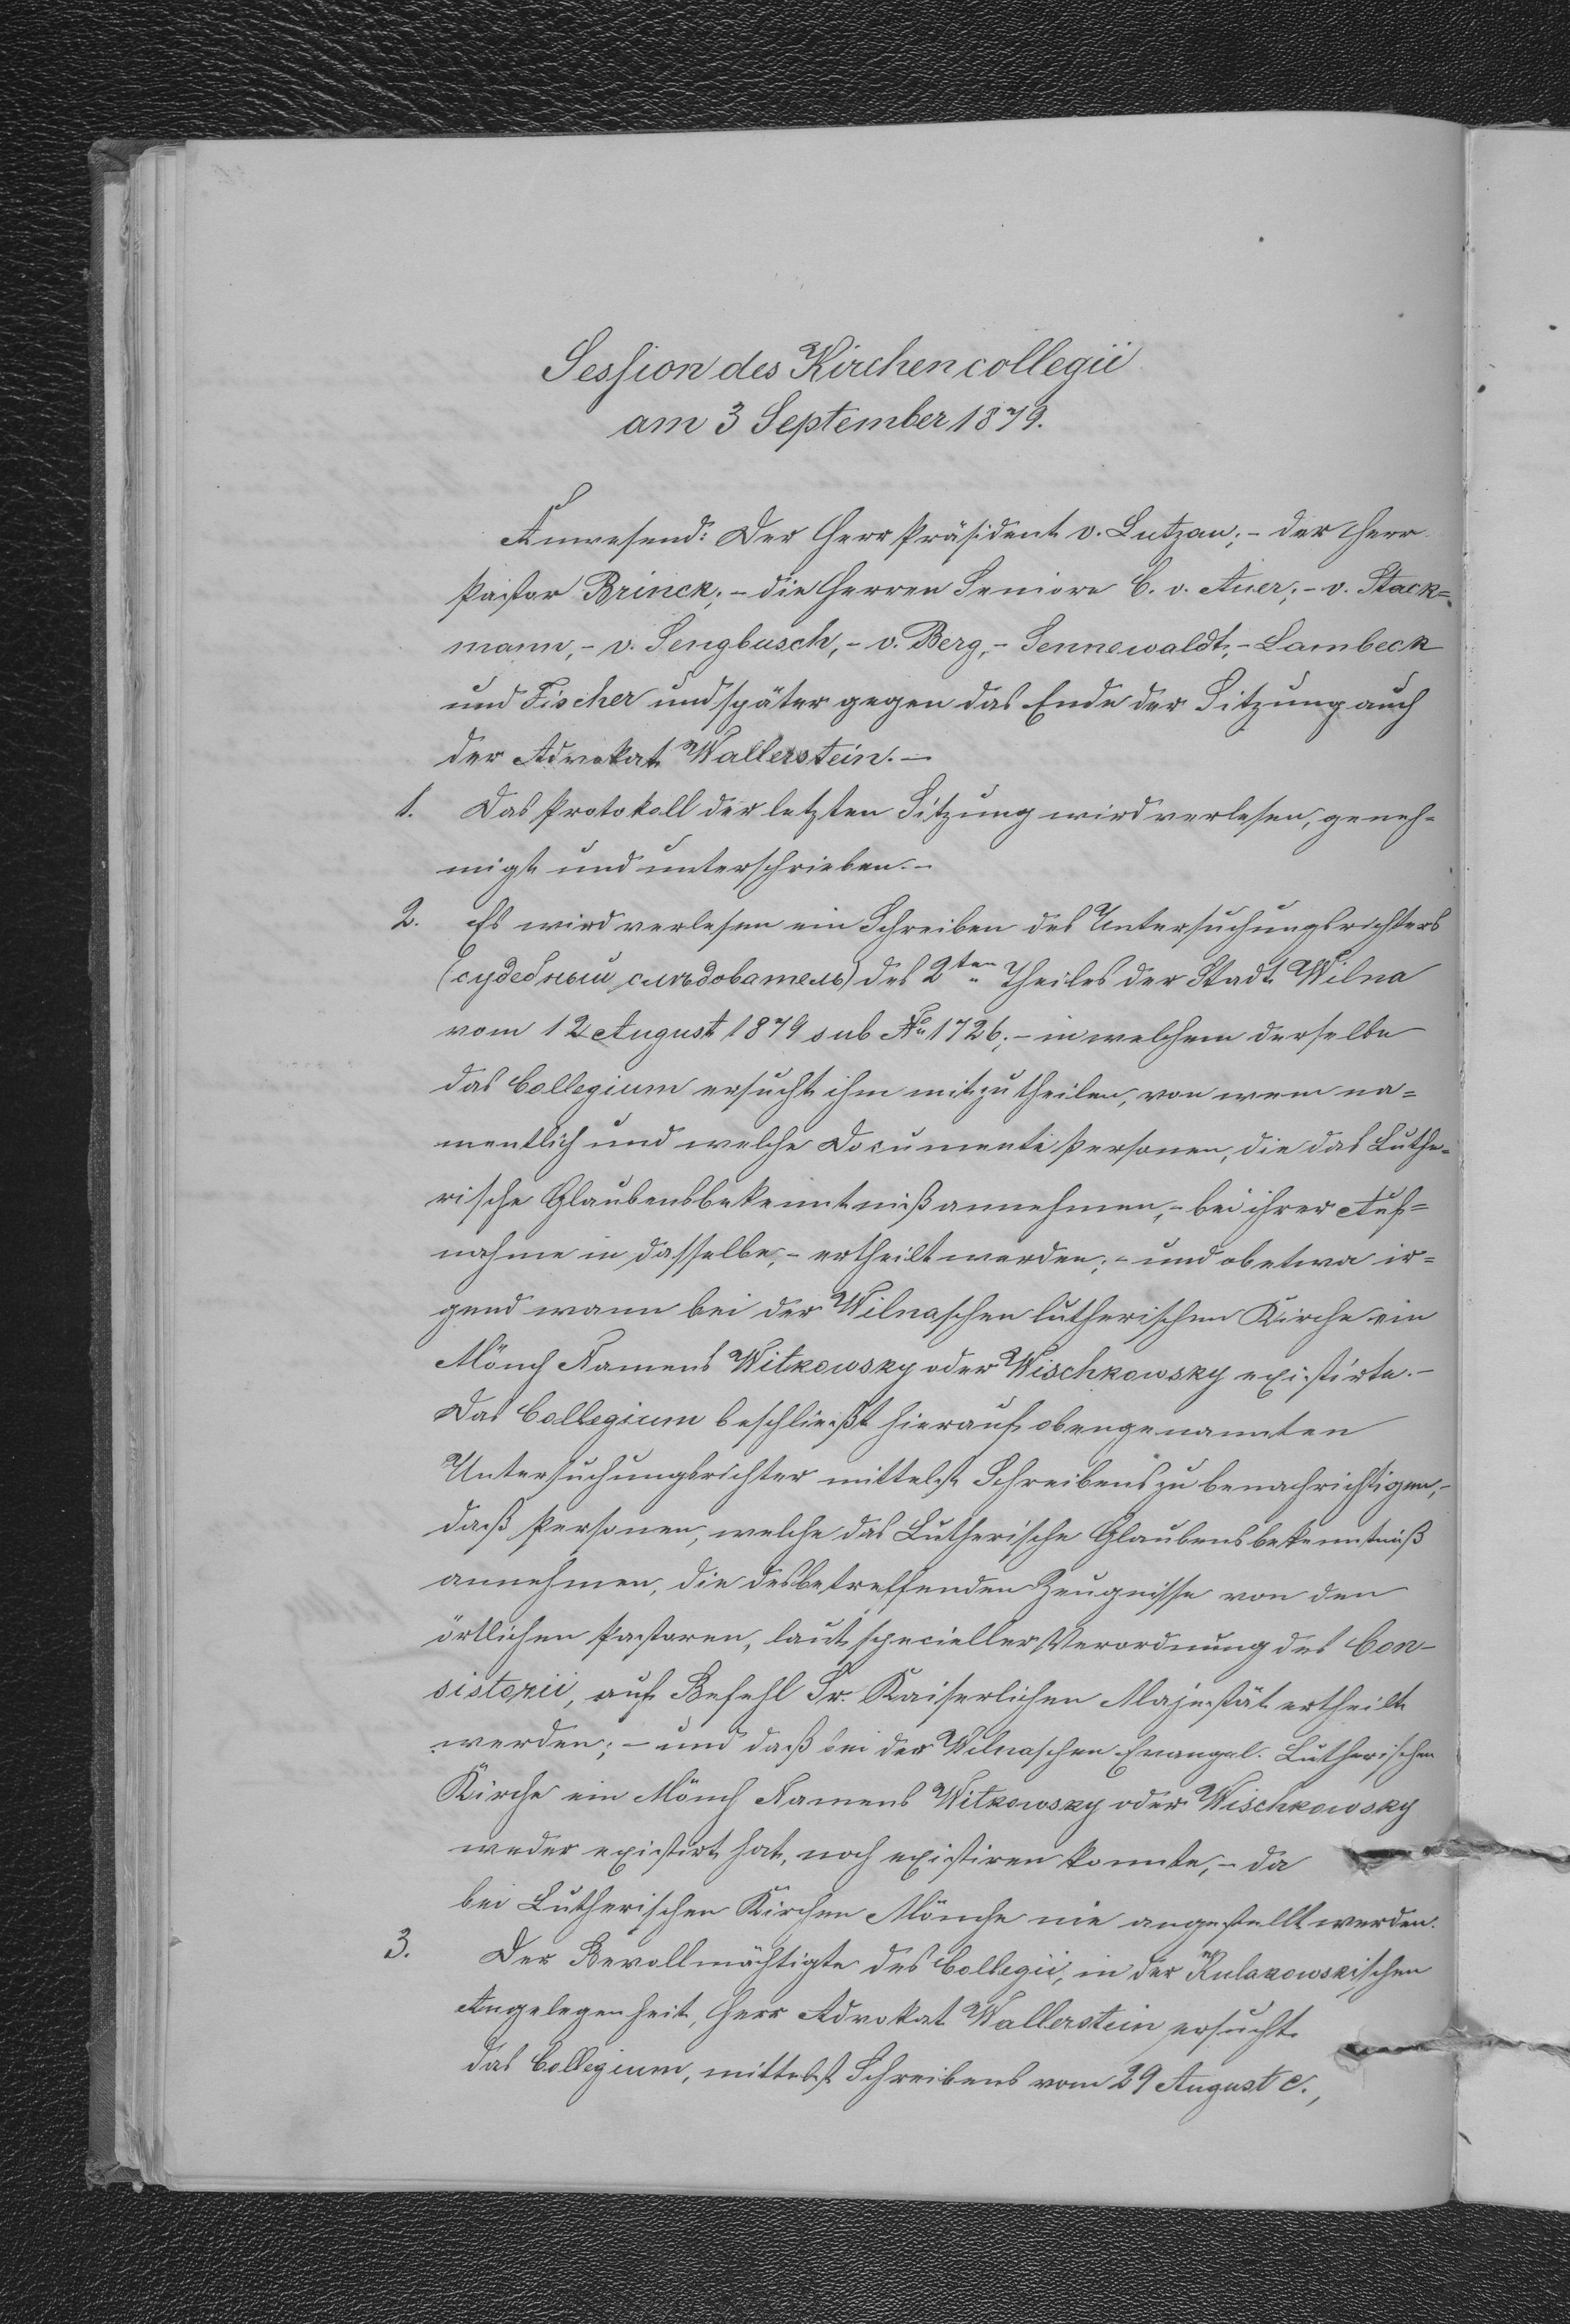 Session des Kirchencollegii
am 3 September 1879.
Anwesend: Der Herr Präsident v. Lutzau; - der Herr
Pastor Brinck; - die Herren Seniore C. v. Auer; - v. Stack=
mann, - v. Sengbusch, - v. Berg, - Sennewaldt, - Lambeck
und Fischer und später gegen das Ende der Sitzung auch
der Advokat Wallerstein. -
1. Das Protokoll der letzten Sitzung wird verlesen, geneh=
migt und unterschrieben. -
2. Es wird verlesen ein Schreiben des Untersuchungsrichters
(судебный слѣдователь) des 2ten Theiles der Stadt Wilna
vom 12 August 1879 sub № 1726; - in welchem derselbe
das Collegium ersucht ihm mitzutheilen, von wem na=
mentlich und welche Documente Personen, die das Luthe=
rische Glaubensbekenntniß annehmen, - bei ihrer Auf=
nahme in dasselbe, - ertheilt werden; - und ob etwa ir=
gend wann bei der Wilnaschen lutherischen Kirche ein
Mönch Namens Witkowsky oder Wischkowsky existirte. -
Das Collegium beschließt hierauf obengenannten
Untersuchungsrichter mittelst Schreibens zu benachrichtigen, -
daß Personen, welche das Lutherische Glaubensbekenntniß
annehmen, die desbetreffenden Zeugnisse von den
örtlichen Pastoren, laut specieller Verordnung des Con-
sistorii, auf Befehl Sr. Kaiserlichen Majestät ertheilt
werden; - und daß bei der Wilnaschen Evangel. Lutherischen
Kirche ein Mönch Namens Witkowsky oder Wischkowsky
weder existirt hat, noch existiren konnte, - da
bei Lutherischen Kirchen Mönche nie angestellt werden.
3. Der Bevollmächtigte des Collegii, in der Kulakowskischen
Angelegenheit, Herr Advokat Wallerstein ersucht
das Collegium, mittelst Schreibens vom 29 August c.,